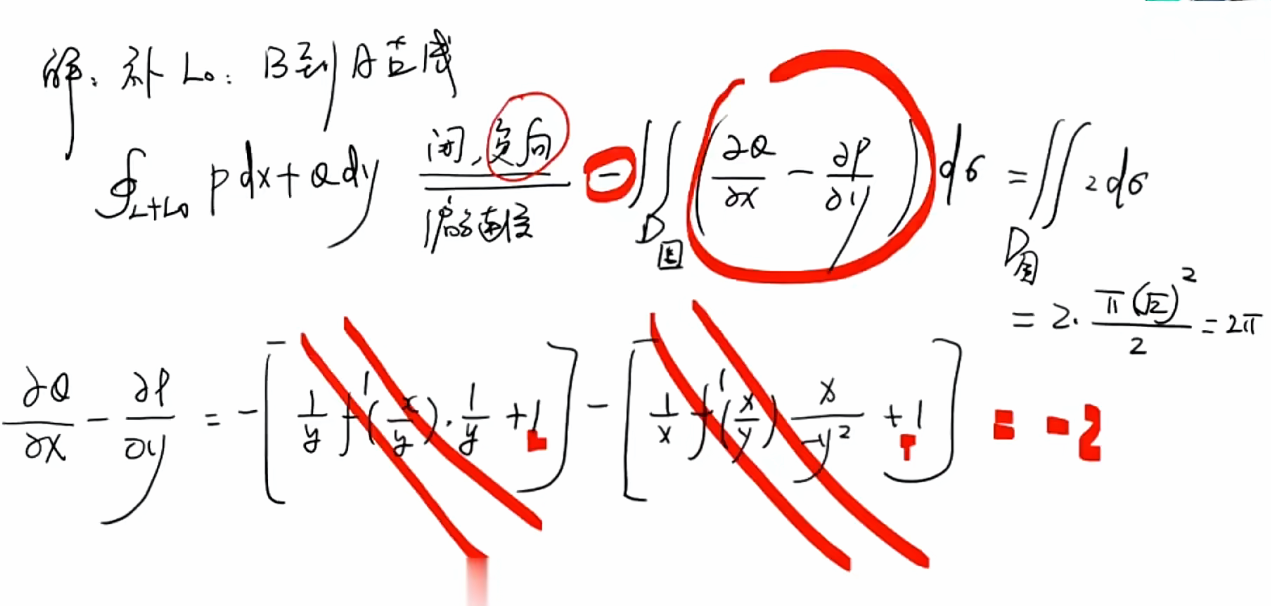 解: 补 L₀: B到A直线
∮_{L+L₀} Pdx+Qdy 闭,负向 / 偏连续 = -∬_D (∂Q/∂x - ∂P/∂y) dσ = ∬_D 2dσ
= 2·π(√2)²/2 = 2π
∂Q/∂x - ∂P/∂y = -[1/y f'(x/y)·1/y + 1] - [1/x f'(x/y) x/-y² + 1] = -2